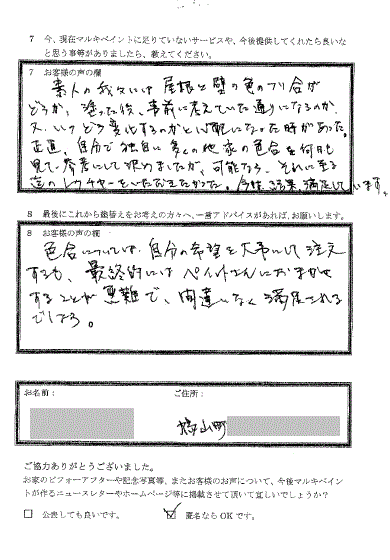 7 今、現在マルキペイントに足りていないサービスや、今後提供してくれたら良いな
と思う事等がありましたら、教えてください。
7 お客様の声の欄
素人の我々には 屋根と壁の色のつり合が
どうか、塗った後、事前に考えていた通りになるのか、
又、いつどう変化するのかと心配になった時があった。
正直、自分で独自に多くの他家の色合を何日も
見て、参考にして決めましたが、可能なら、それに至る
迄のレクチャーをいただきたかった。今は、結果満足しています。
8 最後にこれから塗替えをお考えの方々へ、一言アドバイスがあれば、お願いします。
8 お客様の声の欄
色合については、自分の希望を大事にして注文
するも、最終的にはペイントさんにおまかせ
することが無難で、間違いなく満足される
でしょう。
お名前：
ご住所：
鳩山町
ご協力ありがとうございました。
お家のビフォーアフターや記念写真等、またお客様のお声について、今後マルキペイン
トが作るニュースレターやホームページ等に掲載させて頂いて宜しいでしょうか？
□ 公表しても良いです。
☑ 匿名ならOKです。